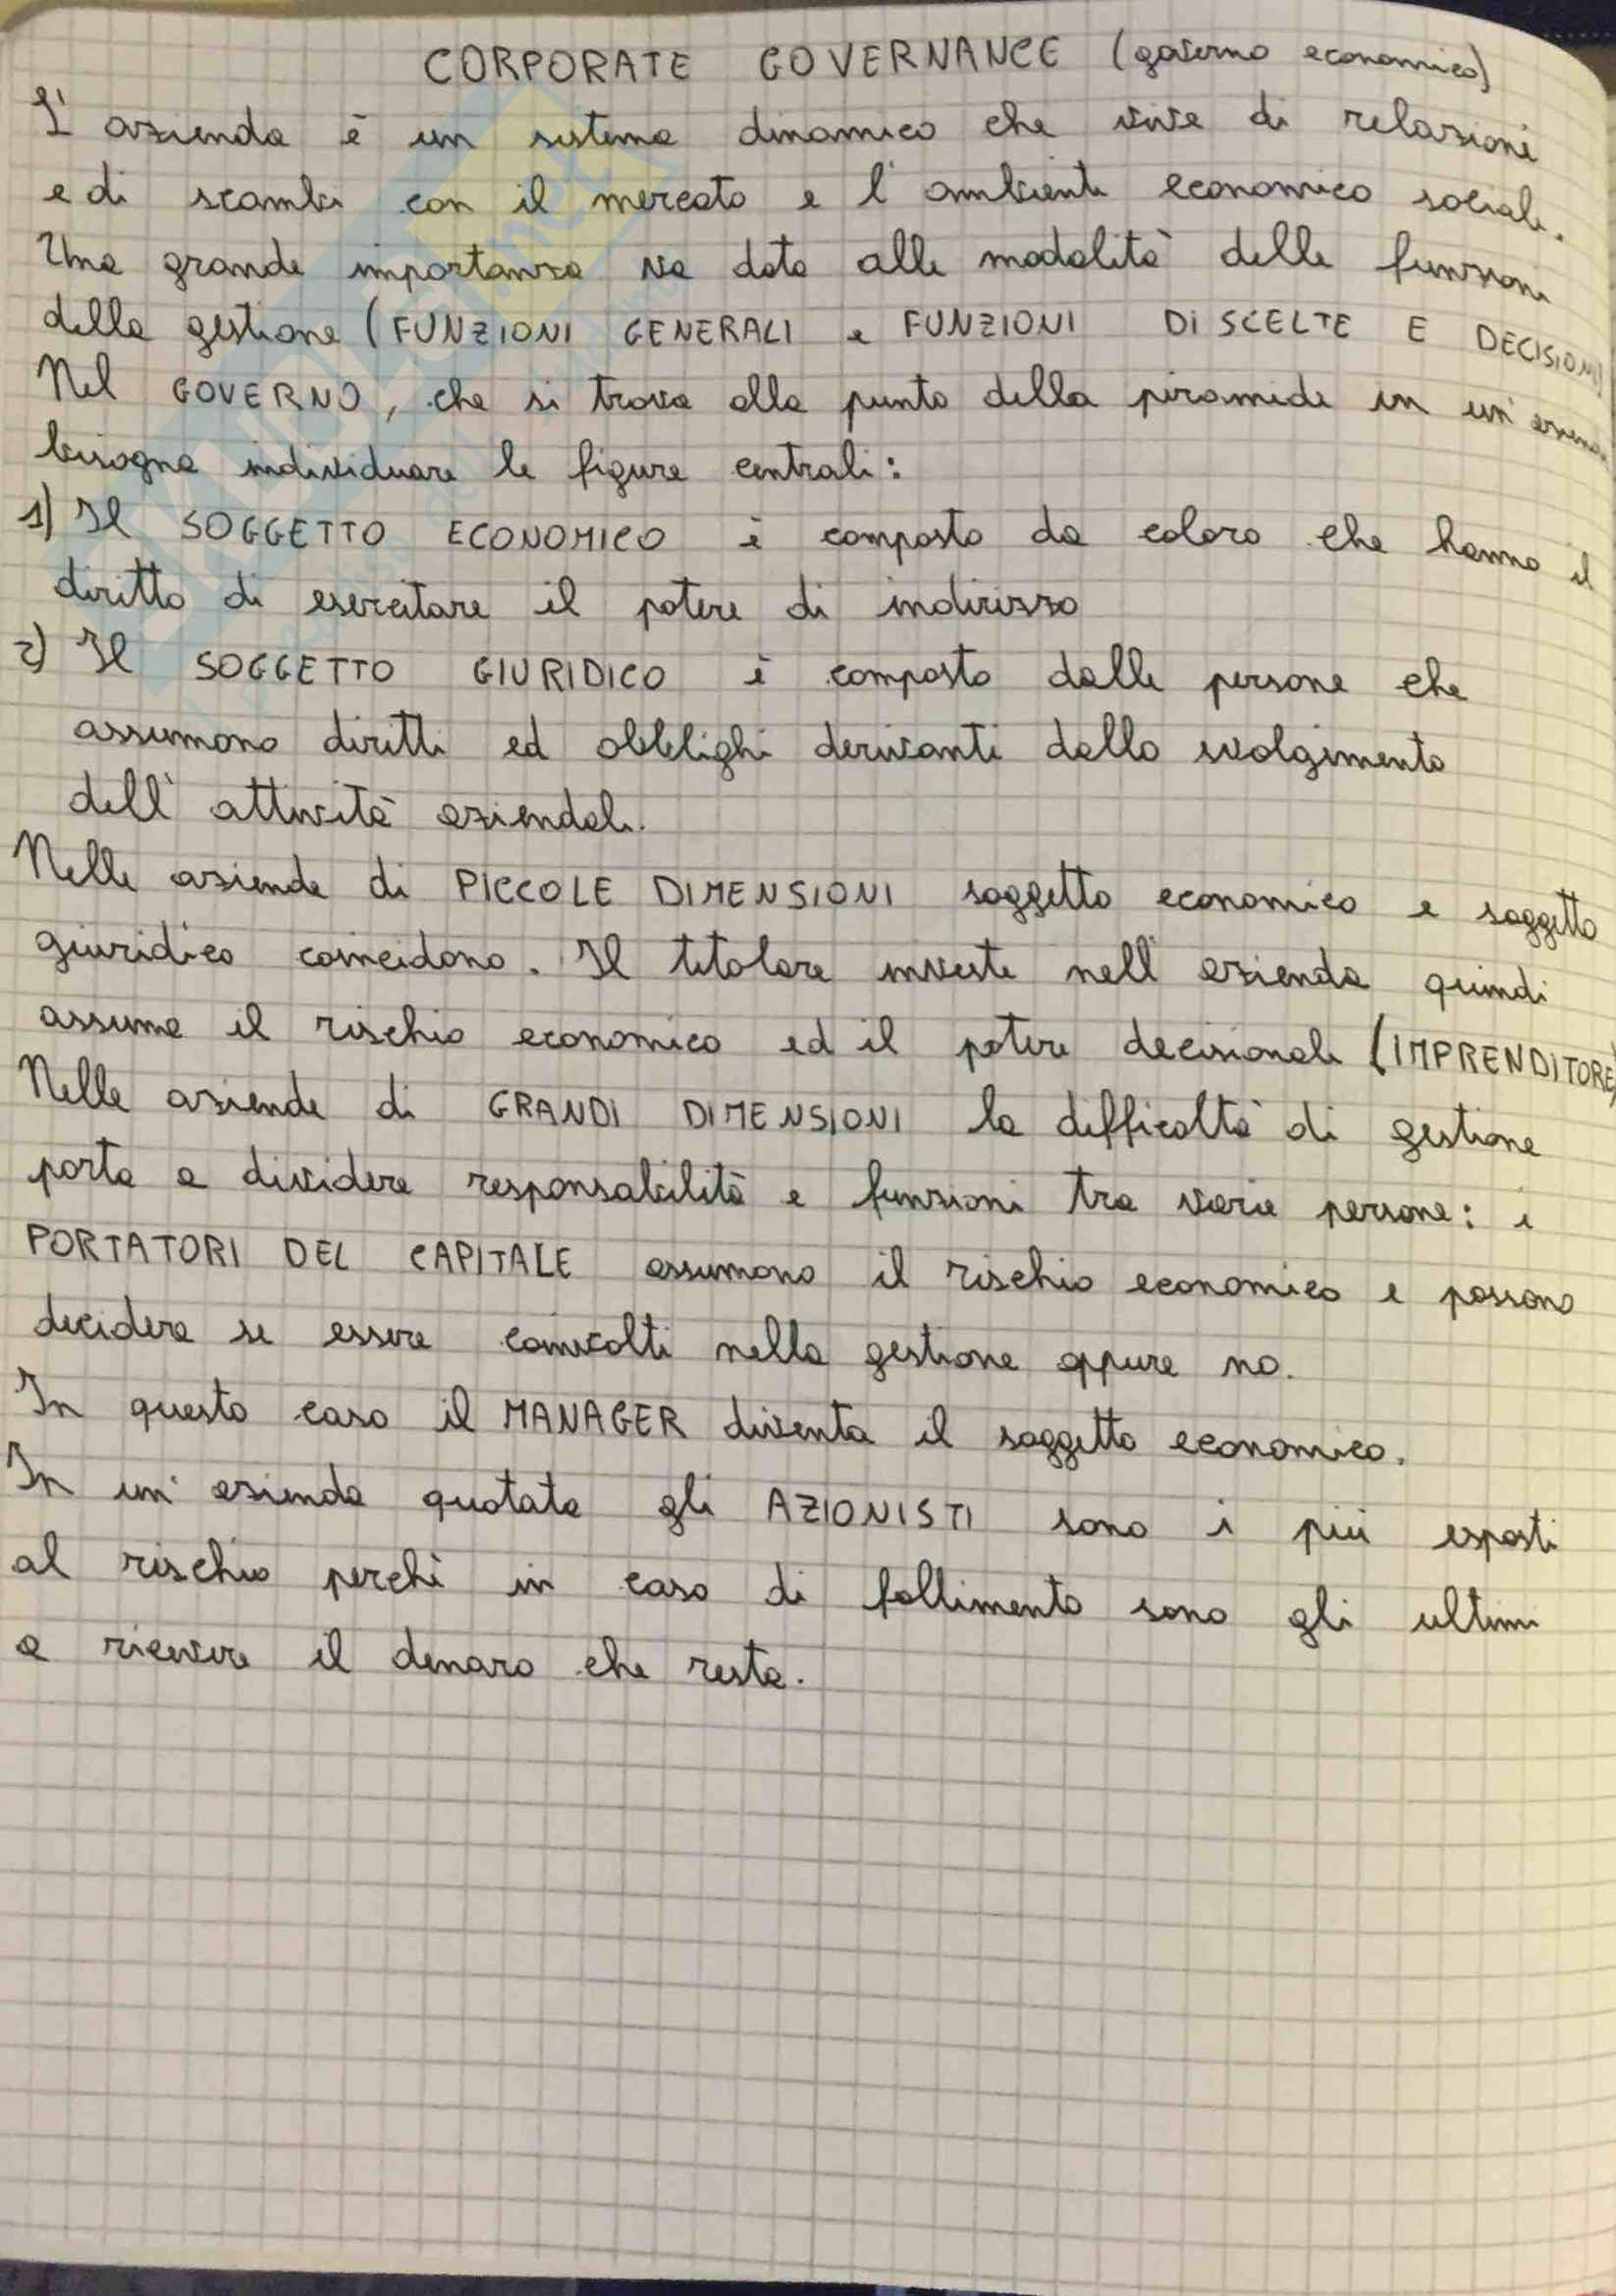 CORPORATE GOVERNANCE (governo economico)
L'azienda è un sistema dinamico che vive di relazioni
e di scambi con il mercato e l'ambiente economico sociale.
Una grande importanza va data alle modalità delle funzioni
della gestione (FUNZIONI GENERALI e FUNZIONI DI SCELTE E DECISIONI)
Nel GOVERNO, che si trova alla punta della piramide in un'azienda
bisogna individuare le figure centrali:
1) Il SOGGETTO ECONOMICO è composto da coloro che hanno il
diritto di esercitare il potere di indirizzo
2) Il SOGGETTO GIURIDICO è composto dalle persone che
assumono diritti ed obblighi derivanti dallo svolgimento
dell'attività aziendale.
Nelle aziende di PICCOLE DIMENSIONI soggetto economico e soggetto
giuridico coincidono. Il titolare investe nell'azienda quindi
assume il rischio economico ed il potere decisionale (IMPRENDITORE)
Nelle aziende di GRANDI DIMENSIONI la difficoltà di gestione
porta a dividere responsabilità e funzioni tra varie persone: i
PORTATORI DEL CAPITALE assumono il rischio economico e possono
decidere se essere coinvolti nella gestione oppure no.
In questo caso il MANAGER diventa il soggetto economico.
In un'azienda quotata gli AZIONISTI sono i più esposti
al rischio perchè in caso di fallimento sono gli ultimi
a ricevere il denaro che resta.